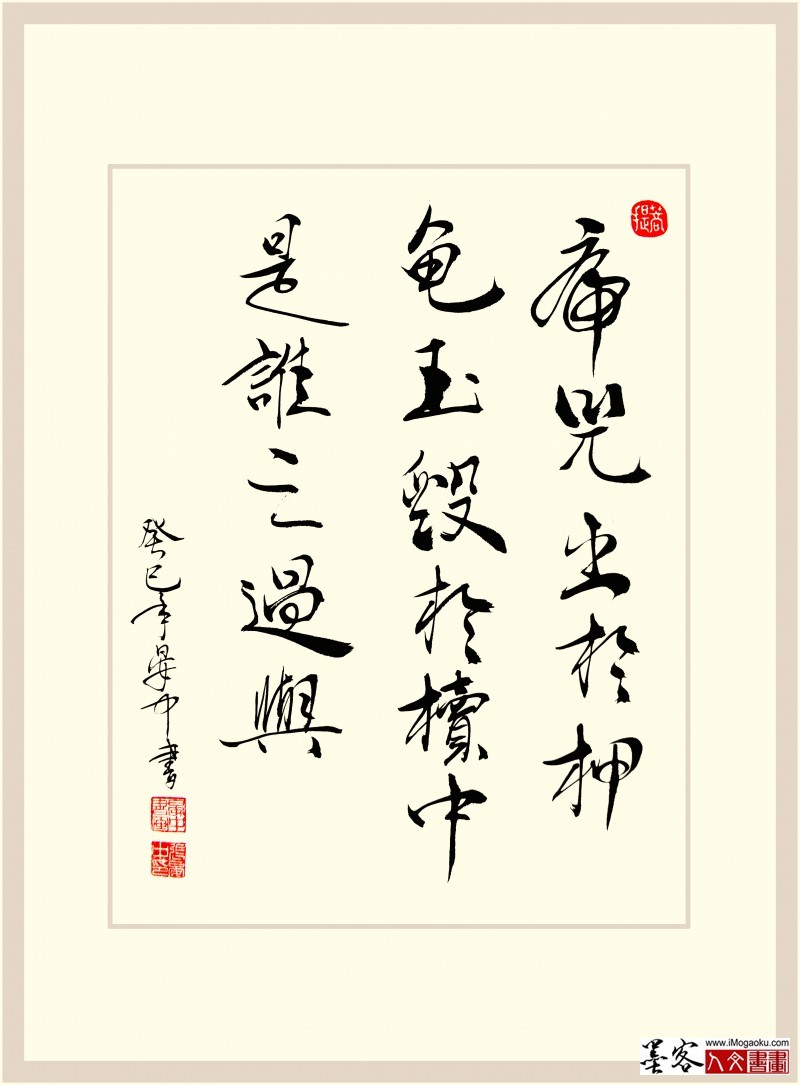 虎兕出於柙
龟玉毀於櫝中
是誰之過與
癸巳年中書
墨客
www.iMogaoku.com
人文書畫